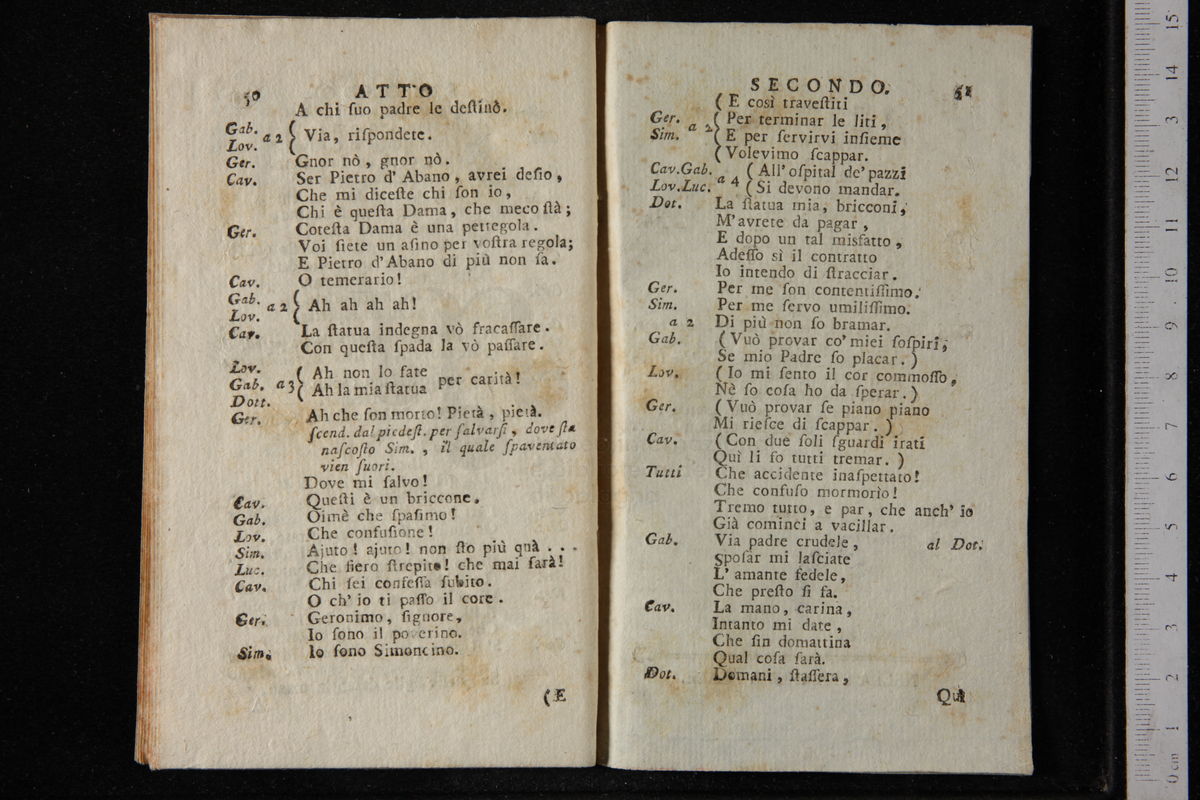 50 ATTO
A chi ſuo padre le deſtinò.
Gab. Lov. a 2 { Via, riſpondete.
Ger. Gnor nò, gnor nò.
Cav. Ser Pietro d' Abano, avrei deſio,
Che mi diceſte chi ſon io,
Chi è queſta Dama, che meco ſtà;
Ger. Coteſta Dama è una pettegola.
Voi ſiete un aſino per voſtra regola;
E Pietro d'Abano di più non ſa.
Cav. O temerario!
Gab. Lov. a 2 { Ah ah ah ah!
Cav. La ſtatua indegna vò fracaſſare.
Con queſta ſpada la vò paſſare.
Lov. Gab. Dott. a 3 { Ah non lo fate
Ah la mia ſtatua per carità!
Ger. Ah che ſon morto! Pietà, pietà.
ſcend. dal piedeſt. per ſalvarſi, dove ſta
naſcoſto Sim., il quale ſpaventato
vien fuori.
Dove mi ſalvo!
Cav. Queſti è un briccone.
Gab. Oimè che ſpaſimo!
Lov. Che confuſione!
Sim. Ajuto! ajuto! non ſto più quà . . .
Luc. Che fiero ſtrepito! che mai ſarà!
Cav. Chi ſei confeſſa ſubito.
O ch' io ti paſſo il core.
Ger. Geronimo, ſignore,
Io ſono il poverino.
Sim. Io ſono Simoncino.
(E
SECONDO. 51
(E così traveſtiti
Ger. Sim. a 2 (Per terminar le liti,
(E per ſervirvi inſieme
(Volevimo ſcappar.
Cav. Gab. Lov. Luc. a 4 (All' oſpital de' pazzi
(Si devono mandar.
Dot. La ſtatua mia, bricconi,
M'avrete da pagar,
E dopo un tal misfatto,
Adeſſo sì il contratto
Io intendo di ſtracciar.
Ger. Per me ſon contentiſſimo.
Sim. Per me ſervo umiliſſimo.
a 2 Di più non ſo bramar.
Gab. (Vuò provar co' miei ſoſpiri,
Se mio Padre ſo placar.)
Lov. (Io mi ſento il cor commoſſo,
Nè ſo coſa ho da ſperar.)
Ger. (Vuò provar ſe piano piano
Mi rieſce di ſcappar.)
Cav. (Con due ſoli ſguardi irati
Quì li fo tutti tremar.)
Tutti Che accidente inaſpettato!
Che confuſo mormorìo!
Tremo tutto, e par, che anch' io
Già cominci a vacillar.
Gab. Via padre crudele, al Dot.
Spoſar mi laſciate
L' amante fedele,
Che preſto ſi fa.
Cav. La mano, carina,
Intanto mi date,
Che ſin domattina
Qual coſa ſarà.
Dot. Domani, ſtaſſera,
Quì